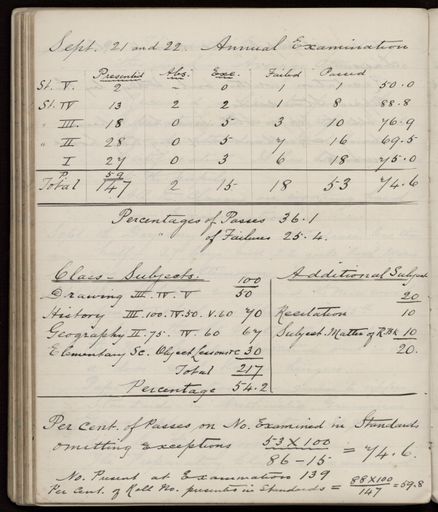 Sept. 21 and 22 Annual Examination
Presented Abs. Exc. Failed Passed
St. V. 2 – 0 1 1 50.0
St. IV 13 2 2 1 8 88.8
" III. 18 0 5 3 10 76.9
" II 28 0 5 7 16 69.5
I 27 0 3 6 18 75.0
P. 59
Total 147 2 15 18 53 74.6
Percentages of Passes 36.1
" of Failures 25.4.
Class-Subjects. 100 Additional Subjects
Drawing III. IV. V 50 20
History III.100. IV.50. V.60 70 Recitation 10
Geography II.75. IV. 60 67 Subject. Matter of R.Bk 10
Elementary Sc. Object Lessons 30 20.
Total 217
Percentage 54.2
Per cent. of Passes on No. Examined in Standards
omitting exceptions 53 X 100 / 86 – 15 = 74.6.
No. Present at Examination 139
Per Cent. of Roll No. presented in Standards = 88 X 100 / 147 = 59.8